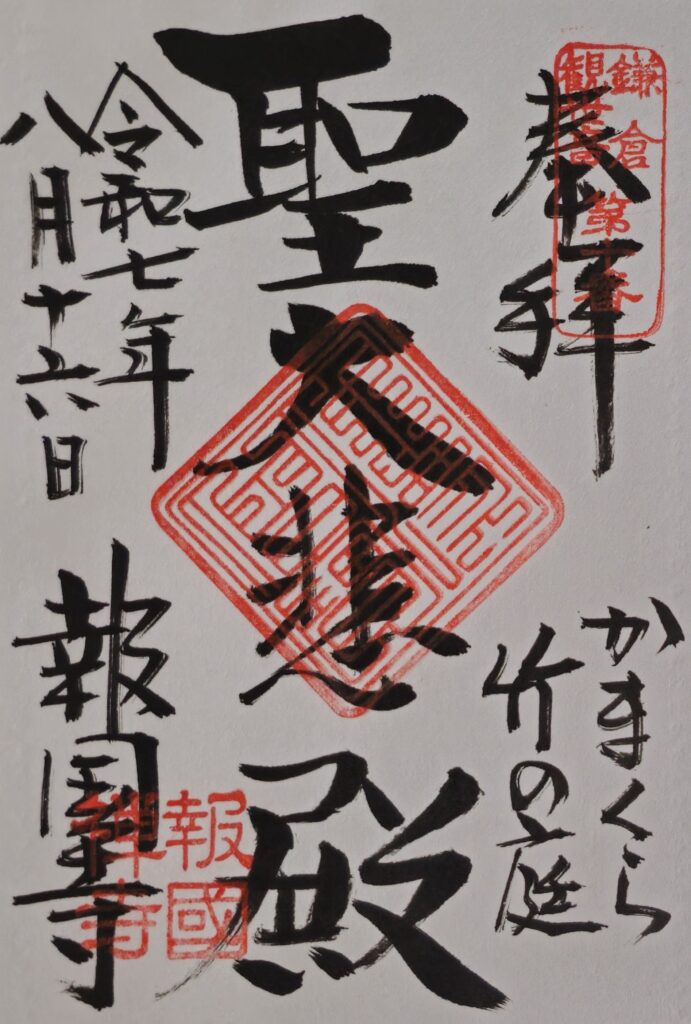 奉拝
鎌倉
観世音第十番
かまくら
竹の庭
聖大悲殿
令和七年
八月十六日
報国寺
報國
禅寺